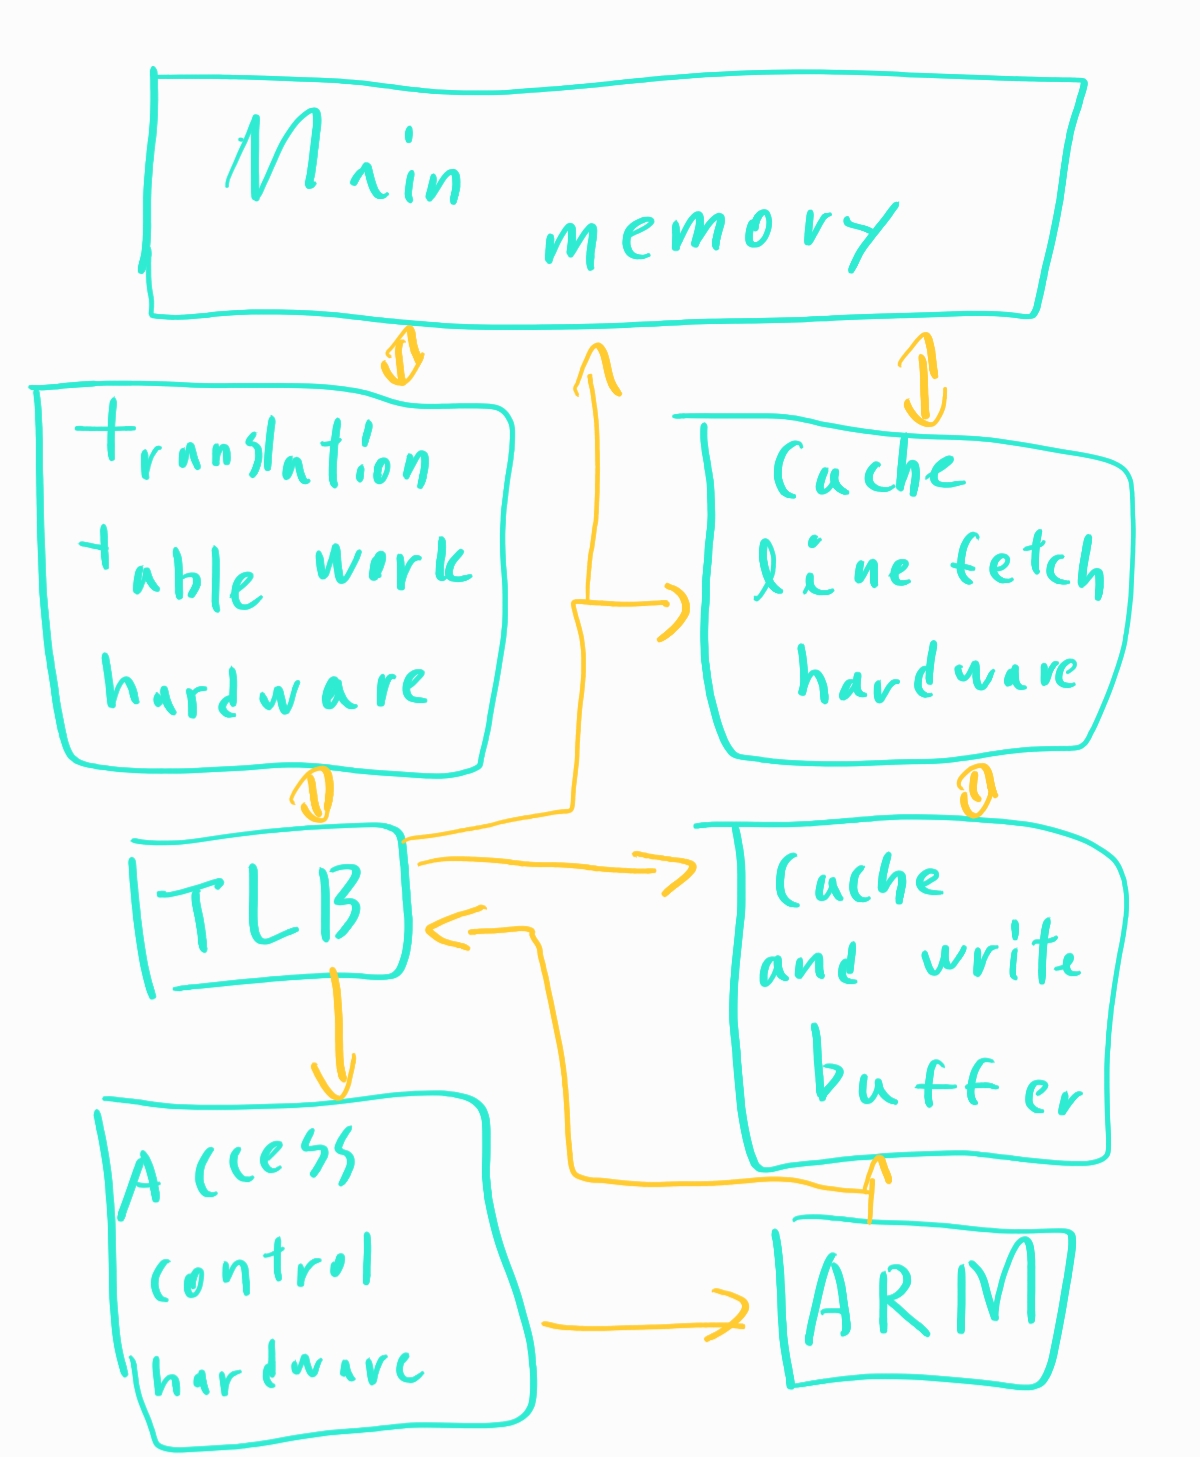 Main
memory
translation
table work
hardware
Cache
line fetch
hardware
TLB
Cache
and write
buffer
Access
control
hardware
ARM